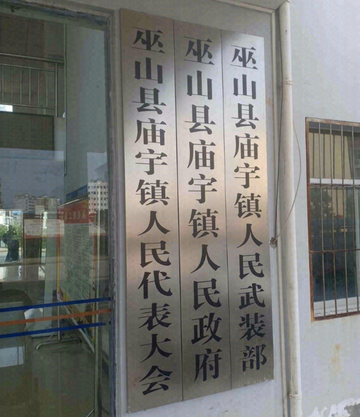 巫山县庙宇镇人民武装部
巫山县庙宇镇人民政府
巫山县庙宇镇人民代表大会